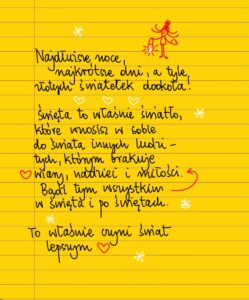 Najdłuższe noce,
najkrótsze dni, a tyle
złotych światełek dookoła!
Święta to właśnie światło,
które wnosisz w sobie
do świata innych ludzi -
tych, którym brakuje
wiary, nadziei i miłości.
Bądź tym wszystkim
w święta i po świętach.
To właśnie czyni świat
lepszym